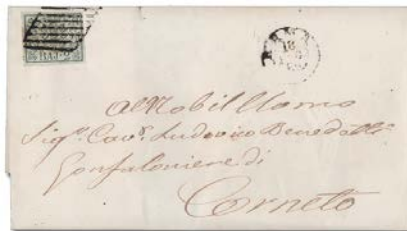 BAJ 2
ROMA
18
Al Nobil Uomo
Sigr. Cavr. Ludovico Benedetti
Gonfaloniere di
Corneto